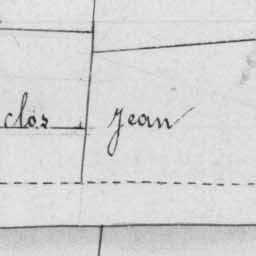 clos Jean